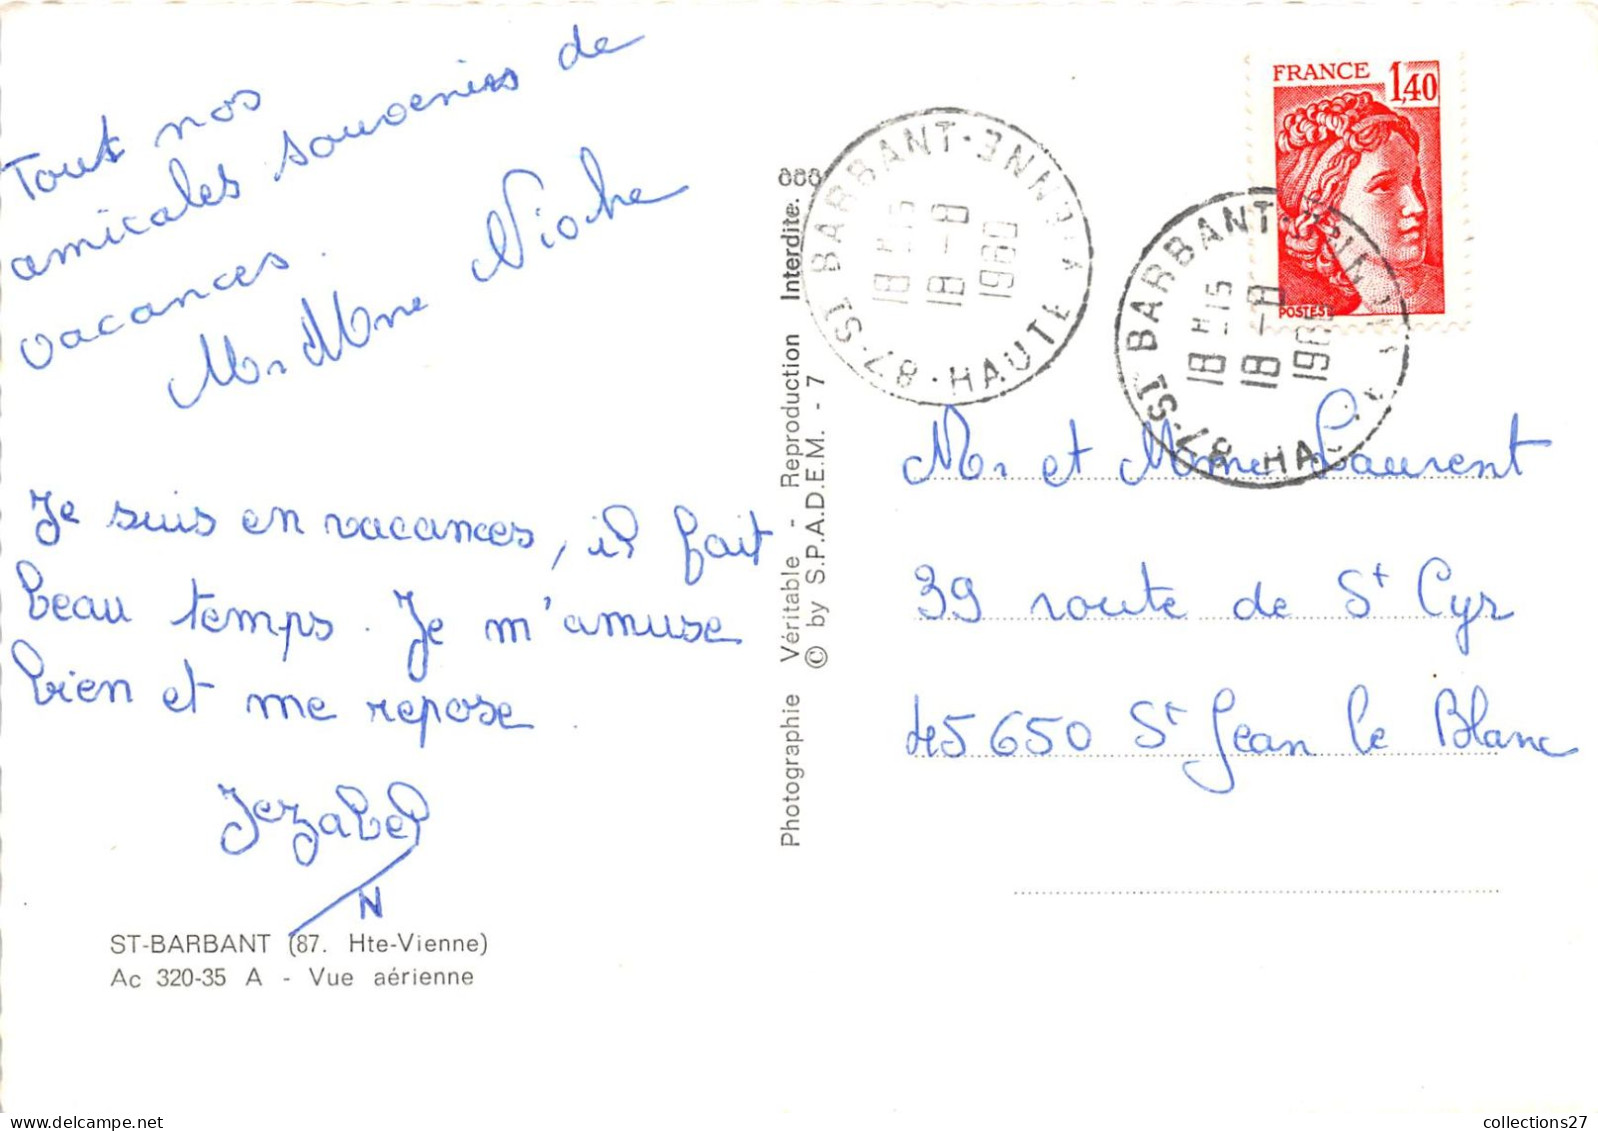 Tout nos
amicales souvenirs de
vacances.
Mr Mme Nioche
Je suis en vacances, il fait
beau temps. Je m'amuse
bien et me repose.
Jezabel
N
ST-BARBANT (87. Hte-Vienne)
Ac 320-35 A - Vue aérienne
Photographie Véritable - Reproduction Interdite.
© by S.P.A.D.E.M. - 7
87-ST BARBANT·HAUTE VIENNE
18H15
18-8
1980
FRANCE 1,40
POSTES
87-ST BARBANT
18H15
18-8
1980
Mr et Mme Laurent
39 route de St Cyr
45650 St Jean le Blanc
collections27